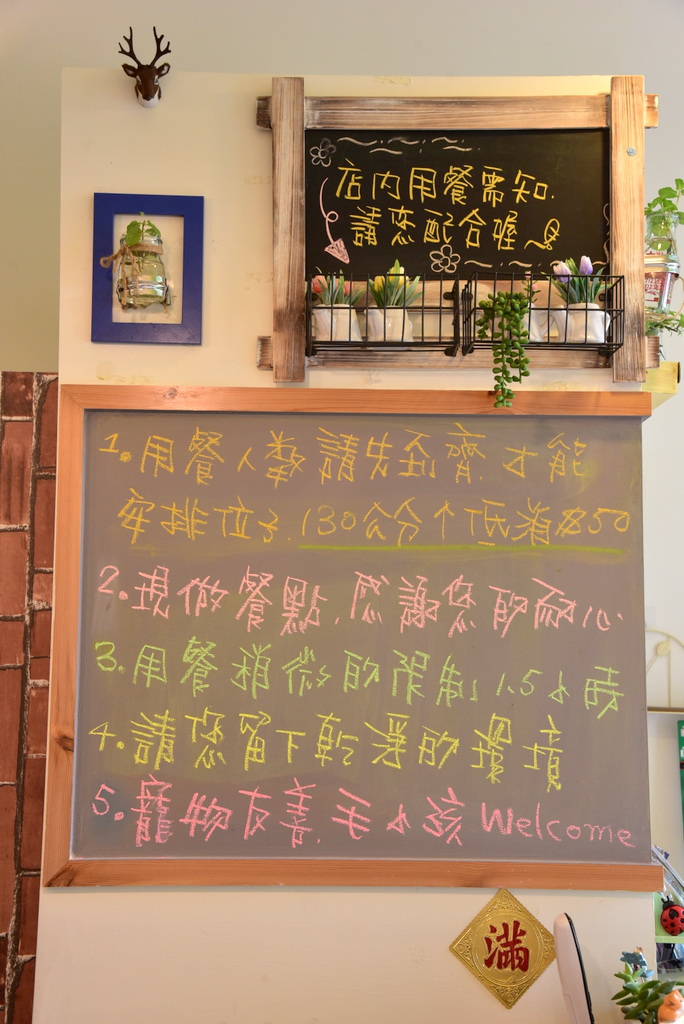 店內用餐需知.
請您配合喔~
1.用餐人數請先到齊.才能
安排位子.130公分↑低消$50
2.現做餐點.感謝您的耐心
3.用餐稍微的限制1.5小時
4.請您留下乾淨的環境
5.寵物友善.毛小孩Welcome
滿